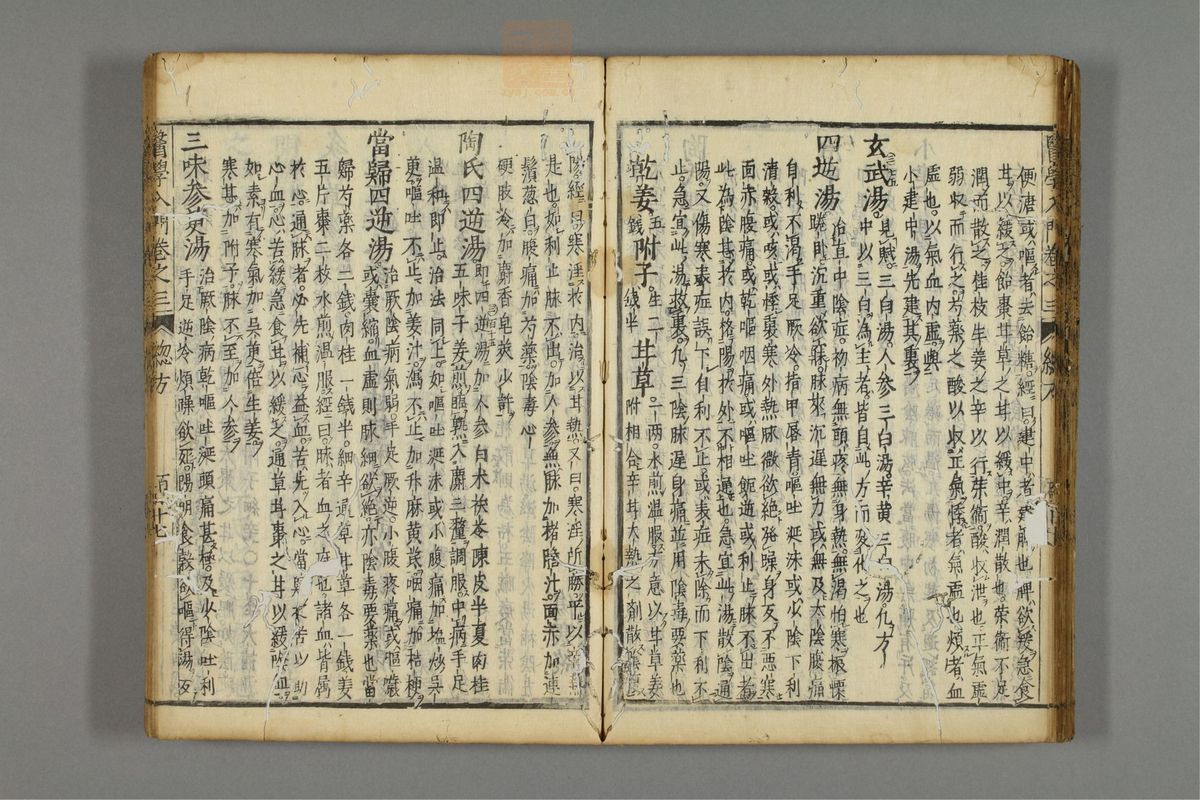 便溏或嘔者去飴糖經曰建中者建脾也脾欲緩急食
甘以緩之飴棗甘草之甘以緩中辛潤散也榮衛不足
潤而散之桂枝生姜之辛以行榮衛酸收泄也正氣虛
弱收而行之芍藥之酸以收正氣悸者氣虛也煩者血
虛也以氣血內虛與
小建中湯先建其裏
玄武湯見賦三白湯人參三白湯辛黃三白湯化方
中以三白為主者皆自此方而變化之也
四逆湯治直中陰症初病無頭疼無身熱無渴怕寒振慄
踡臥沉重欲寐脉來沉遲無力或無及太陰腹痛
自利不渴手足厥冷指甲唇青嘔吐涎沫或少陰下利
清穀或咳或悸裏寒外熱脉微欲絕發躁身反不惡寒
面赤腹痛或乾嘔咽痛或嘔吐飯逆或利止脉不出者
此為陰甚於內格陽於外不相通也急宜此湯散陰通
陽又傷寒表症誤下自利不止或表症未除而下利不
止急宜此湯救裏凡三陰脉遲身痛並用陰毒要藥也
乾姜五錢附子生二錢半甘草一兩水煎溫服方意以甘草姜
附相合辛甘大熱之劑散
陰經曰寒淫於內治以甘熱又曰寒淫所勝平以辛熱
是也如利止脉不出加人參無脉加猪膽汁面赤加連
鬚葱白腹痛加芍藥陰毒心
硬肢冷加麝香皂莢少許
陶氏四逆湯即四逆湯加人參白朮茯苓陳皮半夏肉桂
五味子姜煎臨熟入麝三釐調服中病手足
溫和即止治法同上如嘔吐涎沫或小腹痛加塩炒吳
萸嘔吐不止加姜汁瀉不止加升麻黃芪咽痛加桔梗
當歸四逆湯治厥陰病氣弱手足厥逆小腹疼痛或嘔噦
或囊縮血虛則脉細欲絕亦陰毒要藥也當
歸芍藥各二錢肉桂一錢半細辛通草甘草各一錢姜
五片棗二枚水煎溫服經曰脉者血之府也諸血皆屬
於心通脉者必先補心益血苦先入心當歸之苦以助
心血心苦緩急食甘以緩之通草甘棗之甘以緩陰血
如素有寒氣加吳茱萸倍生姜
寒甚加附子脉不至加人參
三味參萸湯治厥陰病乾嘔吐涎頭痛甚極及少陰吐利
手足逆冷煩躁欲死陽明食穀欲嘔得湯反
醫學入門卷之三 總方